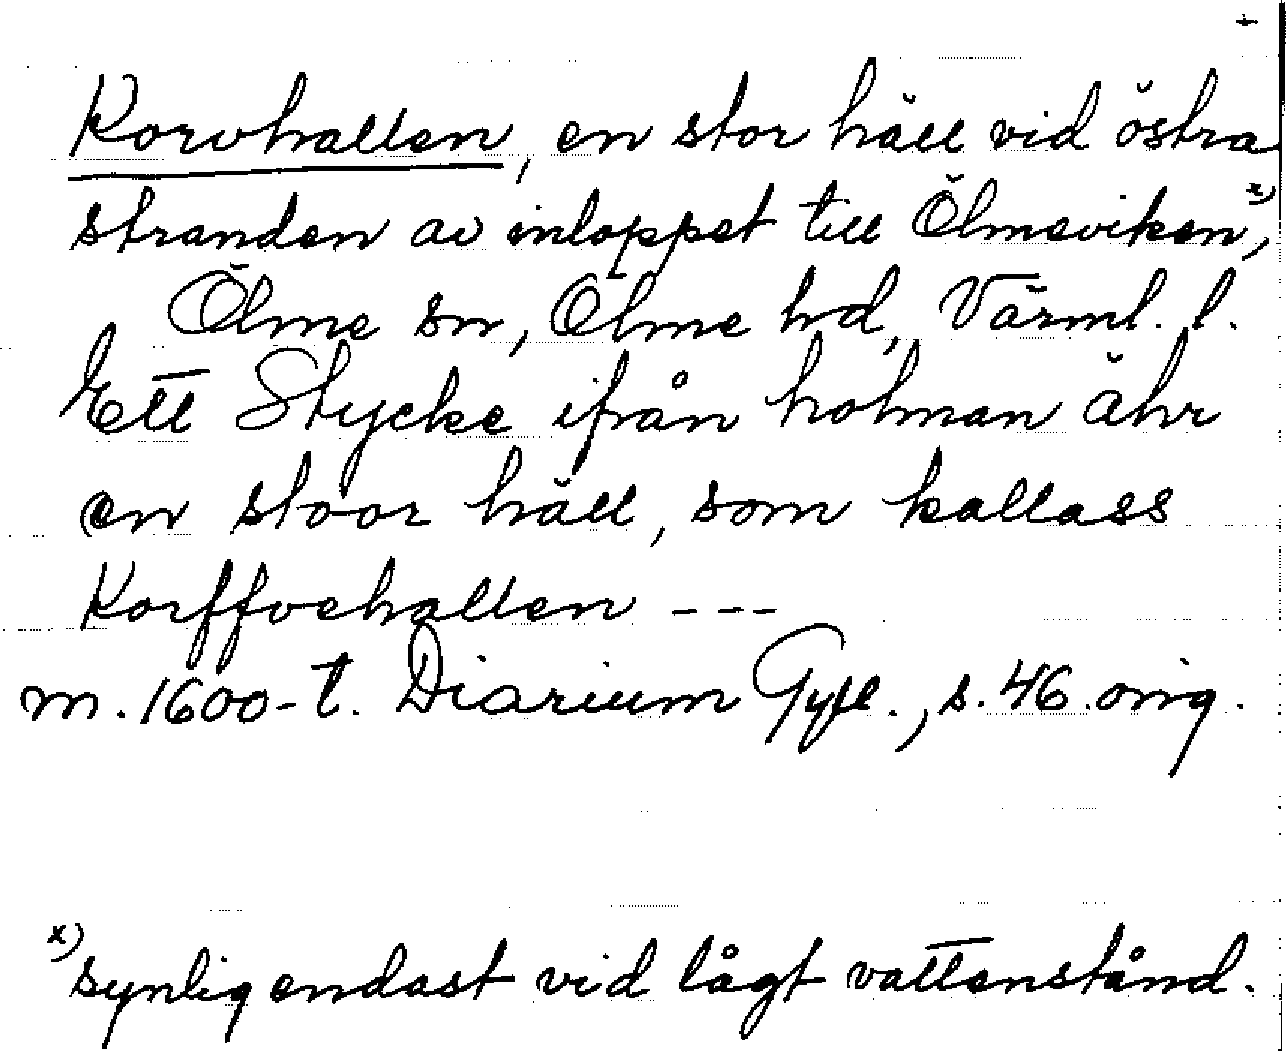 +
Korvhallen, en stor häll vid östra
stranden av inloppet till Ölmeviken x),
Ölme sn, Ölme hd, Värml. l.
Ett Stycke ifrån holman ähr
en stoor häll, som kallass
Korffvehallen ---
m. 1600-t. Diarium Gyll., s. 46. omg.
x) synlig endast vid lågt vattenstånd.